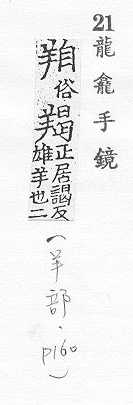 21龍龕手鏡
俗羯正居謁反雄羊也二
(羊部・p160)